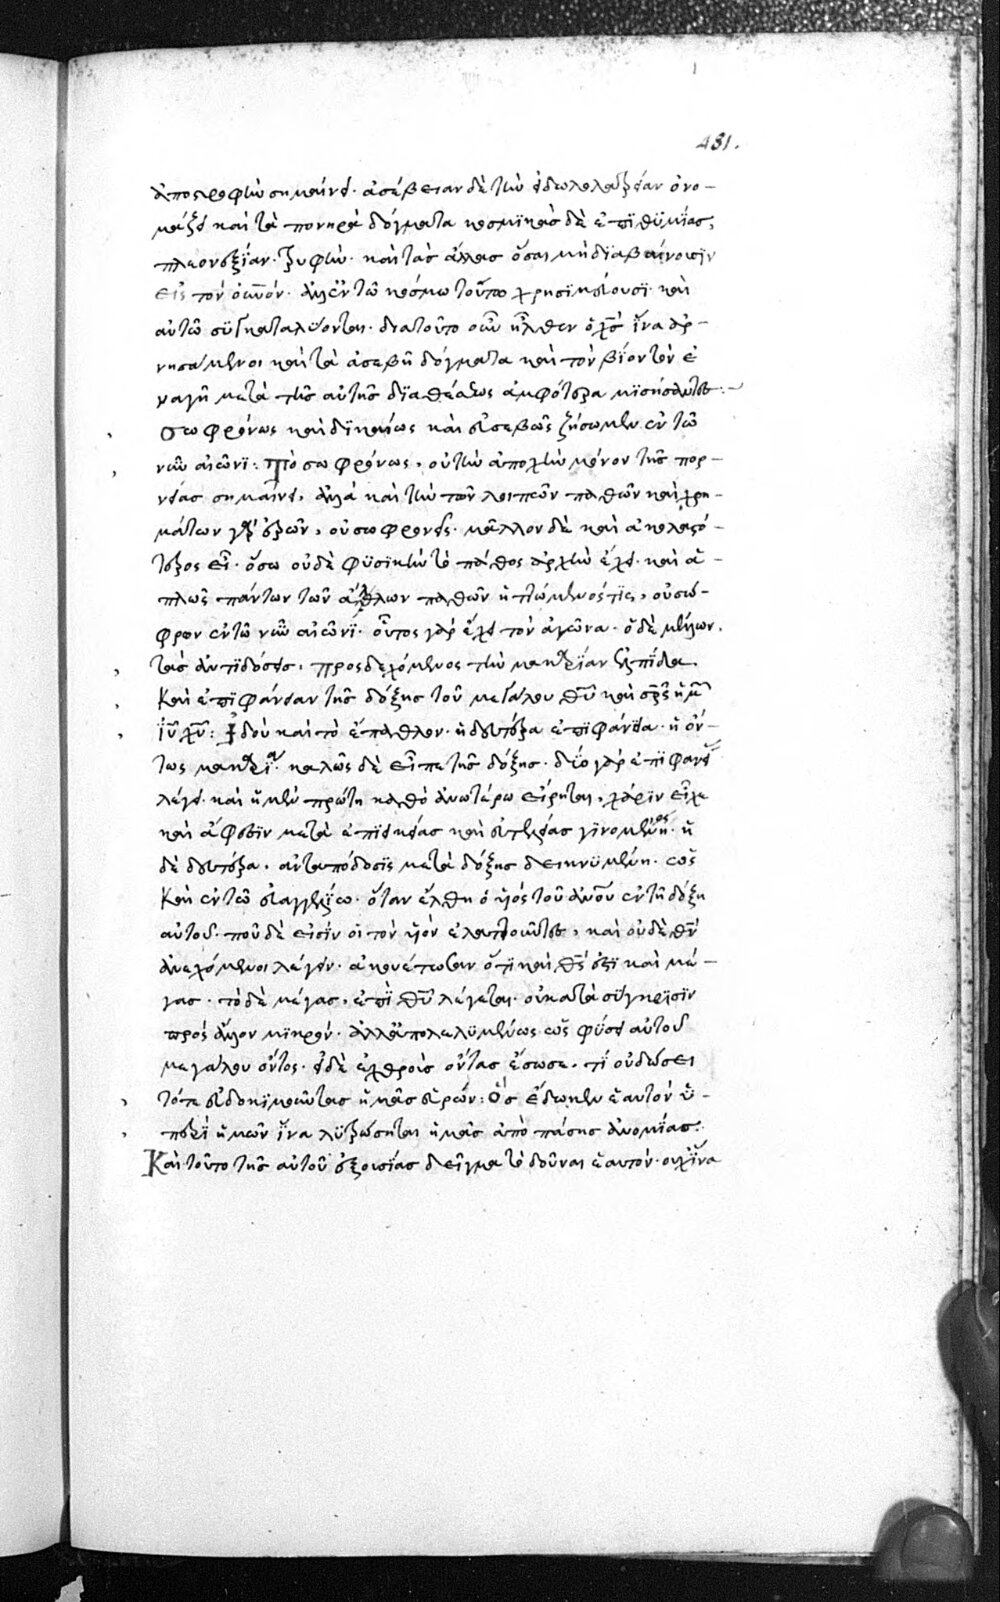 481.
ἀποστροφὴν σημαίνει· ἀσέβειαν δὲ τὴν εἰδωλολατρείαν ὀνο-
μάζει καὶ τὰ πονηρὰ δόγματα κοσμϊκὰς δὲ ἐπϊθϋμΐας,
πλεονεξΐαν· τρυφὴν· καὶ τὰς ἄλλας ὅσαι μὴ δϊαβαίνουσϊν
εἰς τὸν οὐνὸν· ἀλλ' ἐν τῶ κόσμω τούτω χρησϊμεύουσϊ· καὶ
αὐτῶ σϋγκαταλύονται· διατοῦτο οὖν ἦλθεν ὁ χς ἵνα ἀρ-
νησάμενοι καὶ τὰ ἀσεβῆ δόγματα καὶ τὸν βΐον τὸν ἐ
ναγῆ μετὰ τῆς αὐτῆς δϊαθέσεως ἀμφότερα μϊσήσαντες:-
σωφρόνως καὶ δϊκαίως καὶ εὐσεβῶς ζήσωμεν ἐν τῶ
νῦν αἰῶνϊ: Τὸ σωφρόνως, οὐ τὴν ἀποχὴν μόνον τῆς πορ-
νείας σημαίνει, ἀλλὰ καὶ τὴν τῶν λοιπῶν παθῶν καὶ χρη-
μάτων γὰρ ἐρῶν, οὐ σωφρονεῖ· μᾶλλον δὲ καὶ ἀκολαστό-
τερος ἐστὶ· ὅσω οὐδὲ φϋσϊκὴν τὸ πάθος ἀρχὴν ἔχει· καὶ ἁ-
πλῶς πάντων τῶν ἄλλων παθῶν ἡττώμενός τις, οὐ σώ-
φρων ἐν τῶ νῦν αἰῶνϊ· οὗτος γὰρ ἔχει τὸν ἀγῶνα· ὁ δὲ μέλλων,
τὰς ἀντϊδόσεις, προσδεχόμενος τὴν μακαρΐαν ἐλπΐδα.
Καὶ ἐπϊφάνειαν τῆς δόξης τοῦ μεγάλου θυ καὶ σρς ἡμ
ιυ χυ: Ἰδοὺ καὶ τὸ ἔπαθλον· ἡ δευτέρα ἐπϊφάνεια· ἡ ὄν-
τως μακαρΐα· καλῶς δὲ εἶπε τῆς δόξης· δύο γὰρ ἐπϊφανεί
λέγει· καὶ ἡ μὲν πρώτη καθὸ ἀνωτέρω εἴρηται, χάρϊν εἶχε
καὶ ἄφεσϊν μετὰ ἐπϊεικείας καὶ εὐτελείας γϊνομένη· ἡ
δὲ δευτέρα· ἀνταπόδοσϊς μετὰ δόξης δεικνϋμένη· ὡς
Καὶ ἐν τῶ εὐαγγελΐω· ὅταν ἔλθη ὁ υἱὸς τοῦ ἀνου ἐν τῆ δόξη
αὐτοῦ· ποῦ δὲ εἰσὶν οἱ τὸν υἱὸν ἐλαττοῦντες, καὶ οὐδὲ θν
ἀνεχόμενοι λέγειν· ἀκουέτωσαν ὅτϊ καὶ θς ἐστϊ καὶ μέ-
γας· τὸ δὲ μέγας, ἐπὶ θυ λέγεται· οὐ κατὰ σύγκρϊσϊν
πρὸς ἄλλον μϊκρὸν· ἀλλ' ἀπολελϋμένως ὡς φύσει αὐτοῦ
μεγάλου ὄντος· εἰ δὲ ἐχθροὺς ὄντας ἔσωσε, τΐ οὐ δώσει
τότε εὐδοκϊμοῦντας ἡμᾶς εὑρών: Ὃς ἔδωκεν ἑαυτὸν ὑ-
πὲρ ἡμῶν ἵνα λϋτρώσηται ἡμᾶς ἀπὸ πάσης ἀνομΐας:
Καὶ τοῦτο τῆς αὐτοῦ ἐξουσΐας δεῖγμα τὸ δοῦναι ἑαυτὸν· οὐχ ἵνα